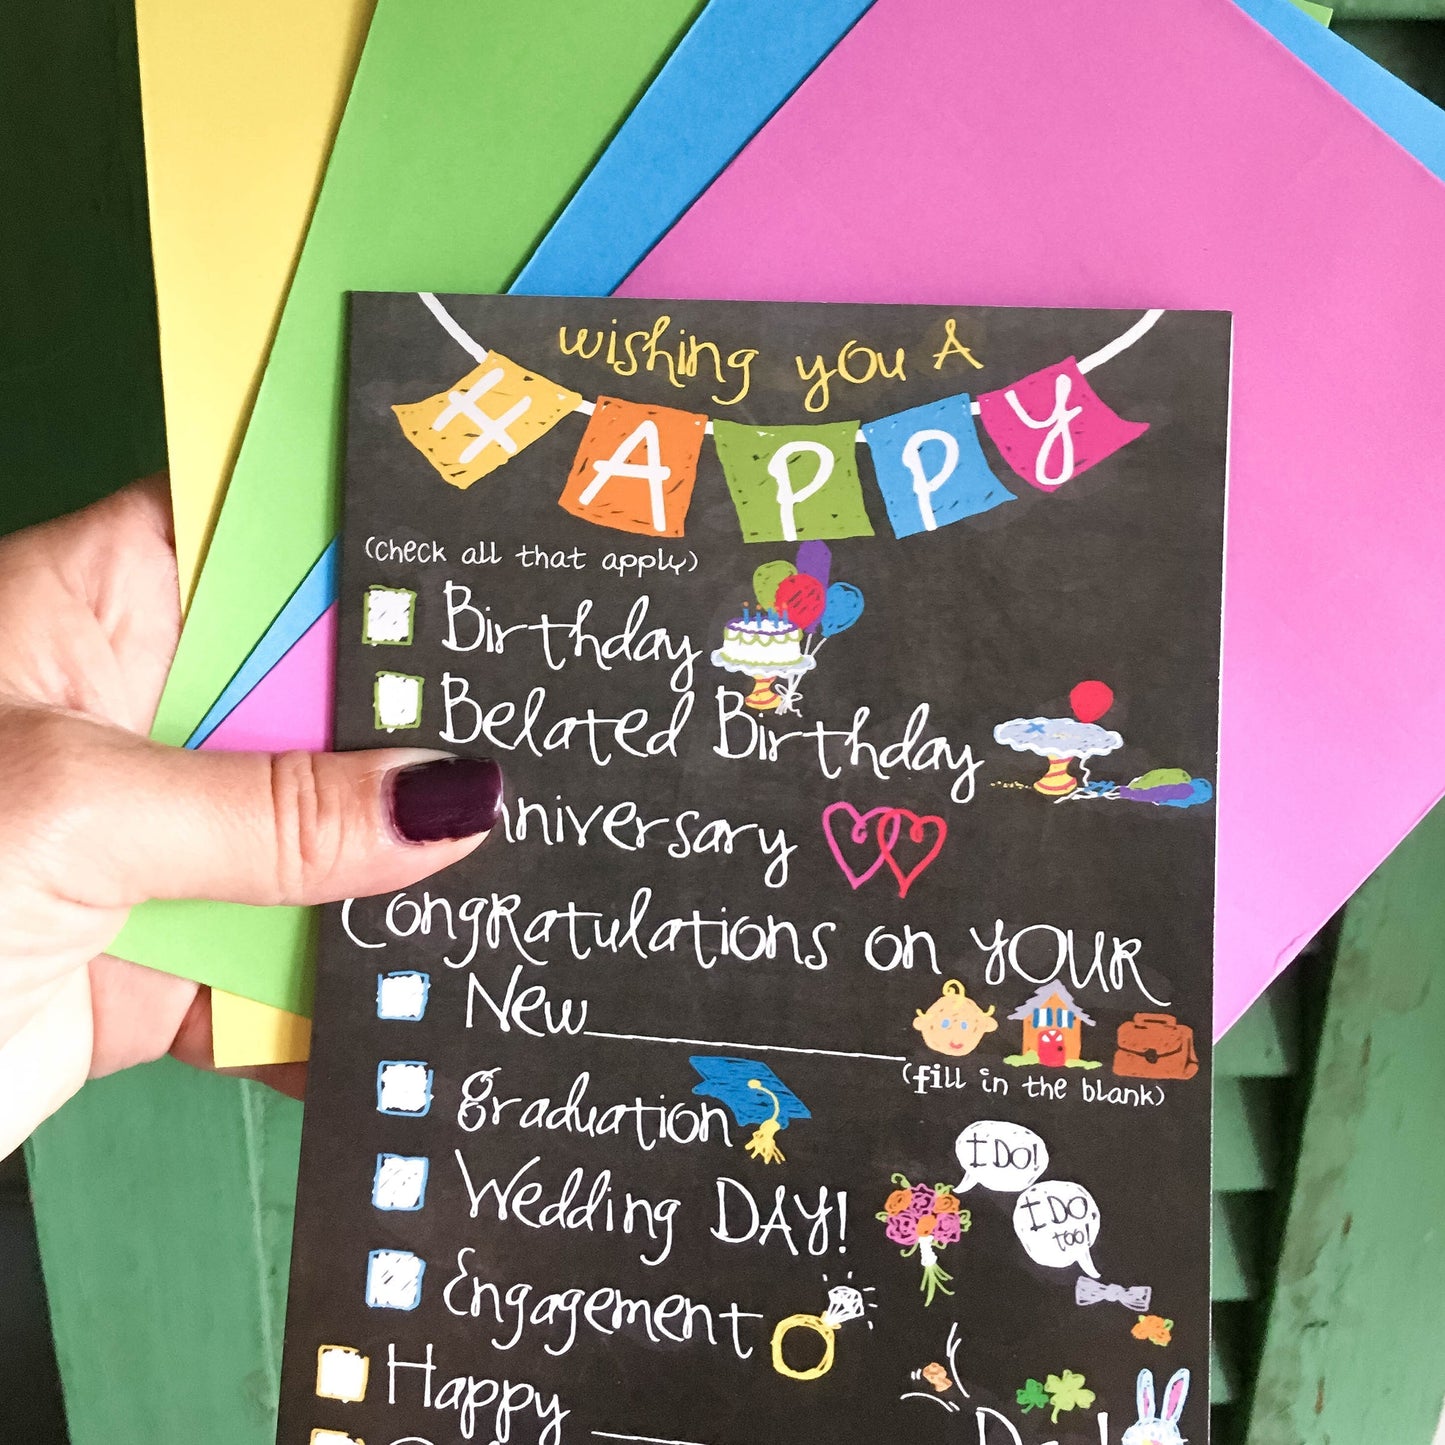 wishing you A
HAPPY
(check all that apply)
Birthday
Belated Birthday
nniversary
Congratulations on YOUR
New
(fill in the blank)
graduation
I DO!
Wedding DAY!
I DO,
too!
Engagement
Happy